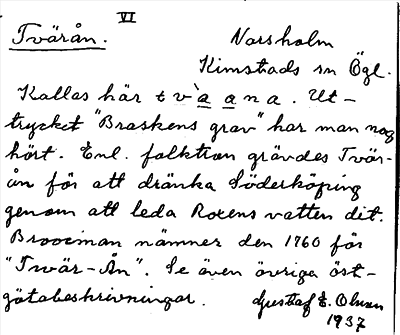 VI
Tvärån. Norsholm
Kimstads sn Ögl.
Kallas här t v`a a n a. Ut-
trycket "Braskens grav" har man nog
hört. Enl. folktron grävdes Tvär-
ån för att dränka Söderköping
genom att leda Roxens vatten dit.
Broocman nämner den 1760 för
"Twär-Ån". Se även övriga öst-
götabeskrivningar. Gustaf E. Olsson
1937